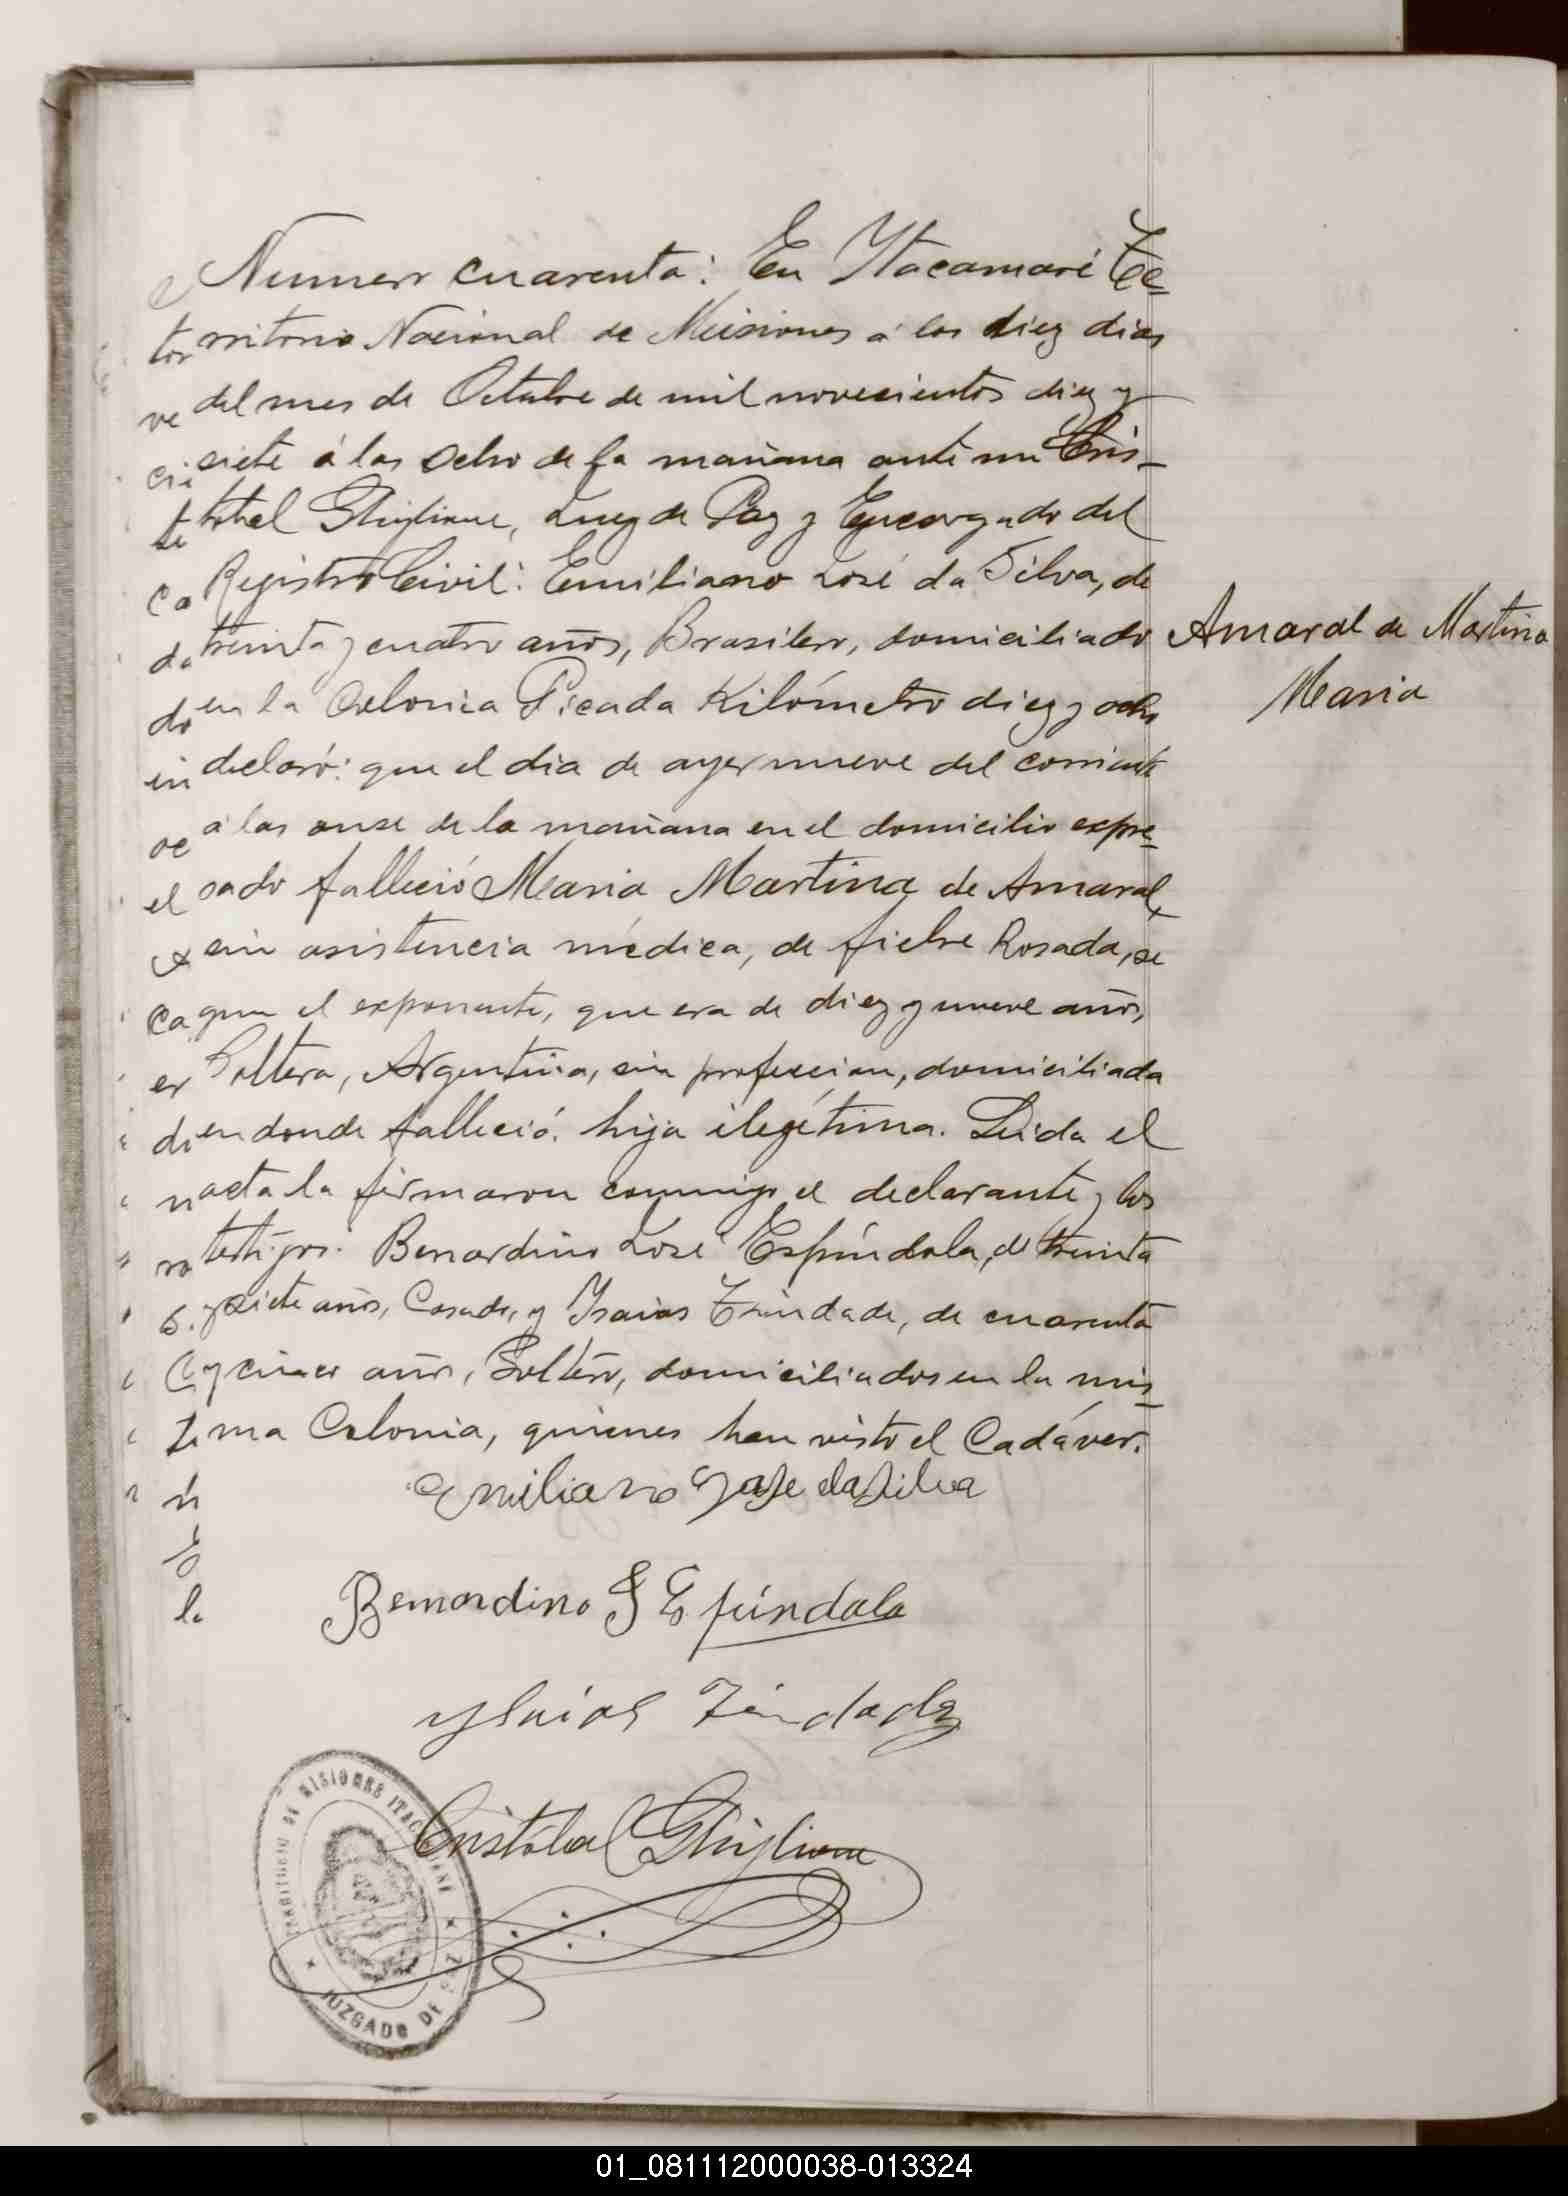 Numero cuarenta: En Ytacamaré Te-
rritorio Nacional de Misiones á los diez dias
del mes de Octubre de mil novecientos diez y
siete á las ocho de la mañana ante mi Cris-
tobal Ghiglione, Juez de Paz y Encargado del
Registro Civil: Emiliano José da Silva, de
treinta y cuatro años, Brasilero, domiciliado
en la Colonia Picada Kilómetro diez y ocho
declaró: que el dia de ayer nueve del corriente
á las onse de la mañana en el domicilio expre-
sado falleció Maria Martina de Amaral,
sin asistencia médica, de fiebre Rosada, se
gun el exponente, que era de diez y nueve años,
Soltera, Argentina, sin profesion, domiciliada
en donde falleció, hija ilegítima. Leida el
acta la firmaron conmigo el declarante y los
testigos: Bernardino José Espíndola, de treinta
y siete años, Casado, y Ysaias Trindade, de cuarenta
y cinco años, Soltero, domiciliados en la mis-
ma Colonia, quienes han visto el Cadáver.
Amaral de Martina
Maria
Emiliano José da Silva
Bernardino J Espíndola
Ysaias Trindade
Cristóbal Ghiglione
TERRITORIO DE MISIONES
JUZGADO DE PAZ
01_081112000038-013324